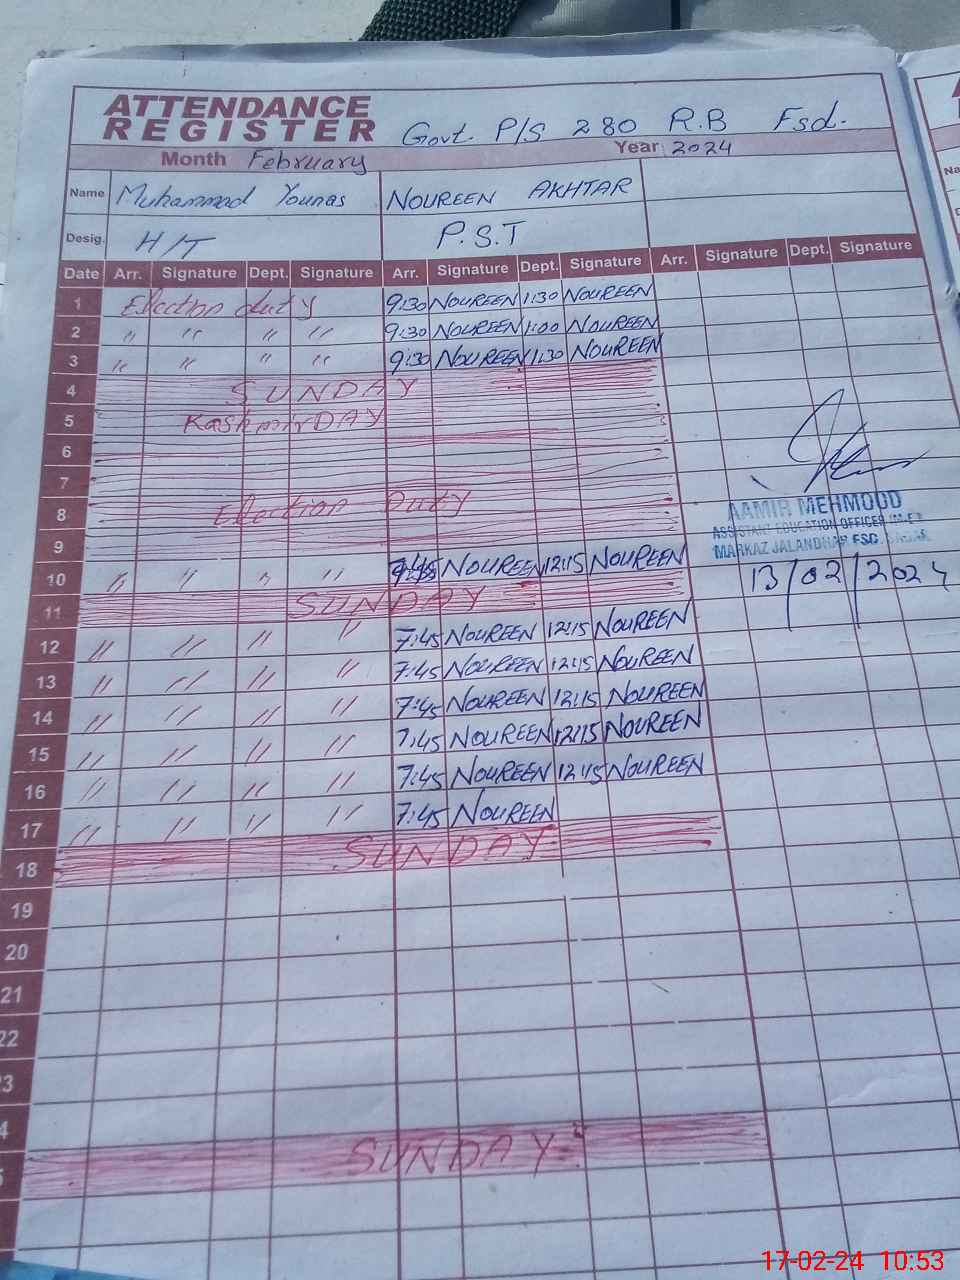 ATTENDANCE
REGISTER
Govt. P/S 280 R.B Fsd.
Month February Year 2024
Name Muhammad Younas NOUREEN AKHTAR
Desig. H/T P.S.T
Date Arr. Signature Dept. Signature Arr. Signature Dept. Signature Arr. Signature Dept. Signature
1 Election duty 9:30 NOUREEN 1:30 NOUREEN
2 " " " " 9:30 NOUREEN 1:00 NOUREEN
3 " " " " 9:30 NOUREEN 1:30 NOUREEN
4 SUNDAY
5 Kashmir DAY
6
7
8 Election Duty
9
10 " " " " NOUREEN 12:15 NOUREEN
11 SUNDAY
12 " " " " 7:45 NOUREEN 12:15 NOUREEN
13 " " " " 7:45 NOUREEN 12:15 NOUREEN
14 " " " " 7:45 NOUREEN 12:15 NOUREEN
15 " " " " 7:45 NOUREEN 12:15 NOUREEN
16 " " " " 7:45 NOUREEN 12:15 NOUREEN
17 " " " " 7:45 NOUREEN
18 SUNDAY
19
20
21
22
3
4
SUNDAY
AAMIR MEHMOOD
ASSISTANT EDUCATION OFFICER
MARKAZ JALANDHAR FSD.
13/02/2024
17-02-24 10:53